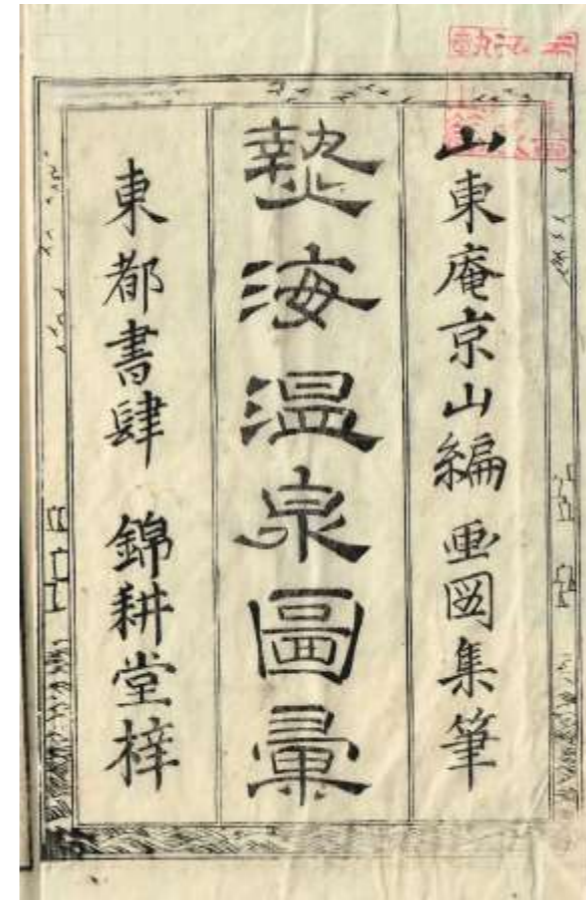 山東庵京山編 画図集筆
熱海温泉圖彙
東都書肆 錦耕堂梓